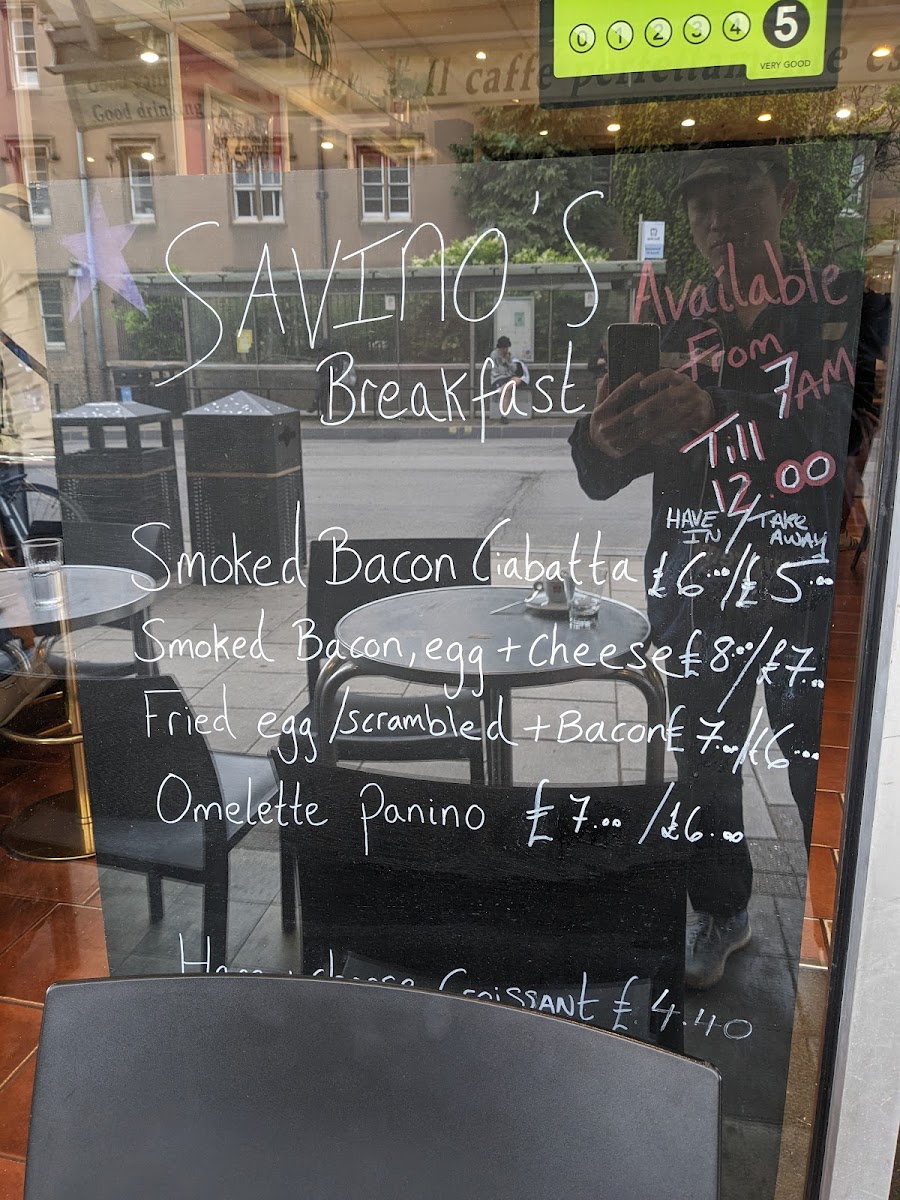 0 1 2 3 4 5
VERY GOOD
Il caffè
Good drinking
SAVINO'S
Breakfast
Available
From
7AM
Till
12.00
HAVE IN / TAKE AWAY
Smoked Bacon Ciabatta £6.00/£5.00
Smoked Bacon, egg + Cheese £8.00/£7.00
Fried egg/scrambled + Bacon £7.00/£6.00
Omelette Panino £7.00/£6.00
Croissant £4.40